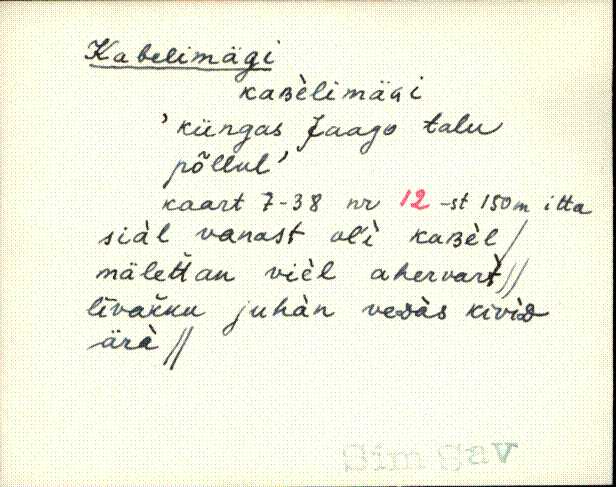 Kabelimägi
kaʙèlimäɢi
'küngas Jaago talu
põllul'
kaart 7-38 nr 12 -st 150m itta
siàl vanast ol'ì kaʙèl /
mälettan vièl ahervart //
līvakku juhàn veᴅàs kiviᴅ
ärà //
Sim Sav